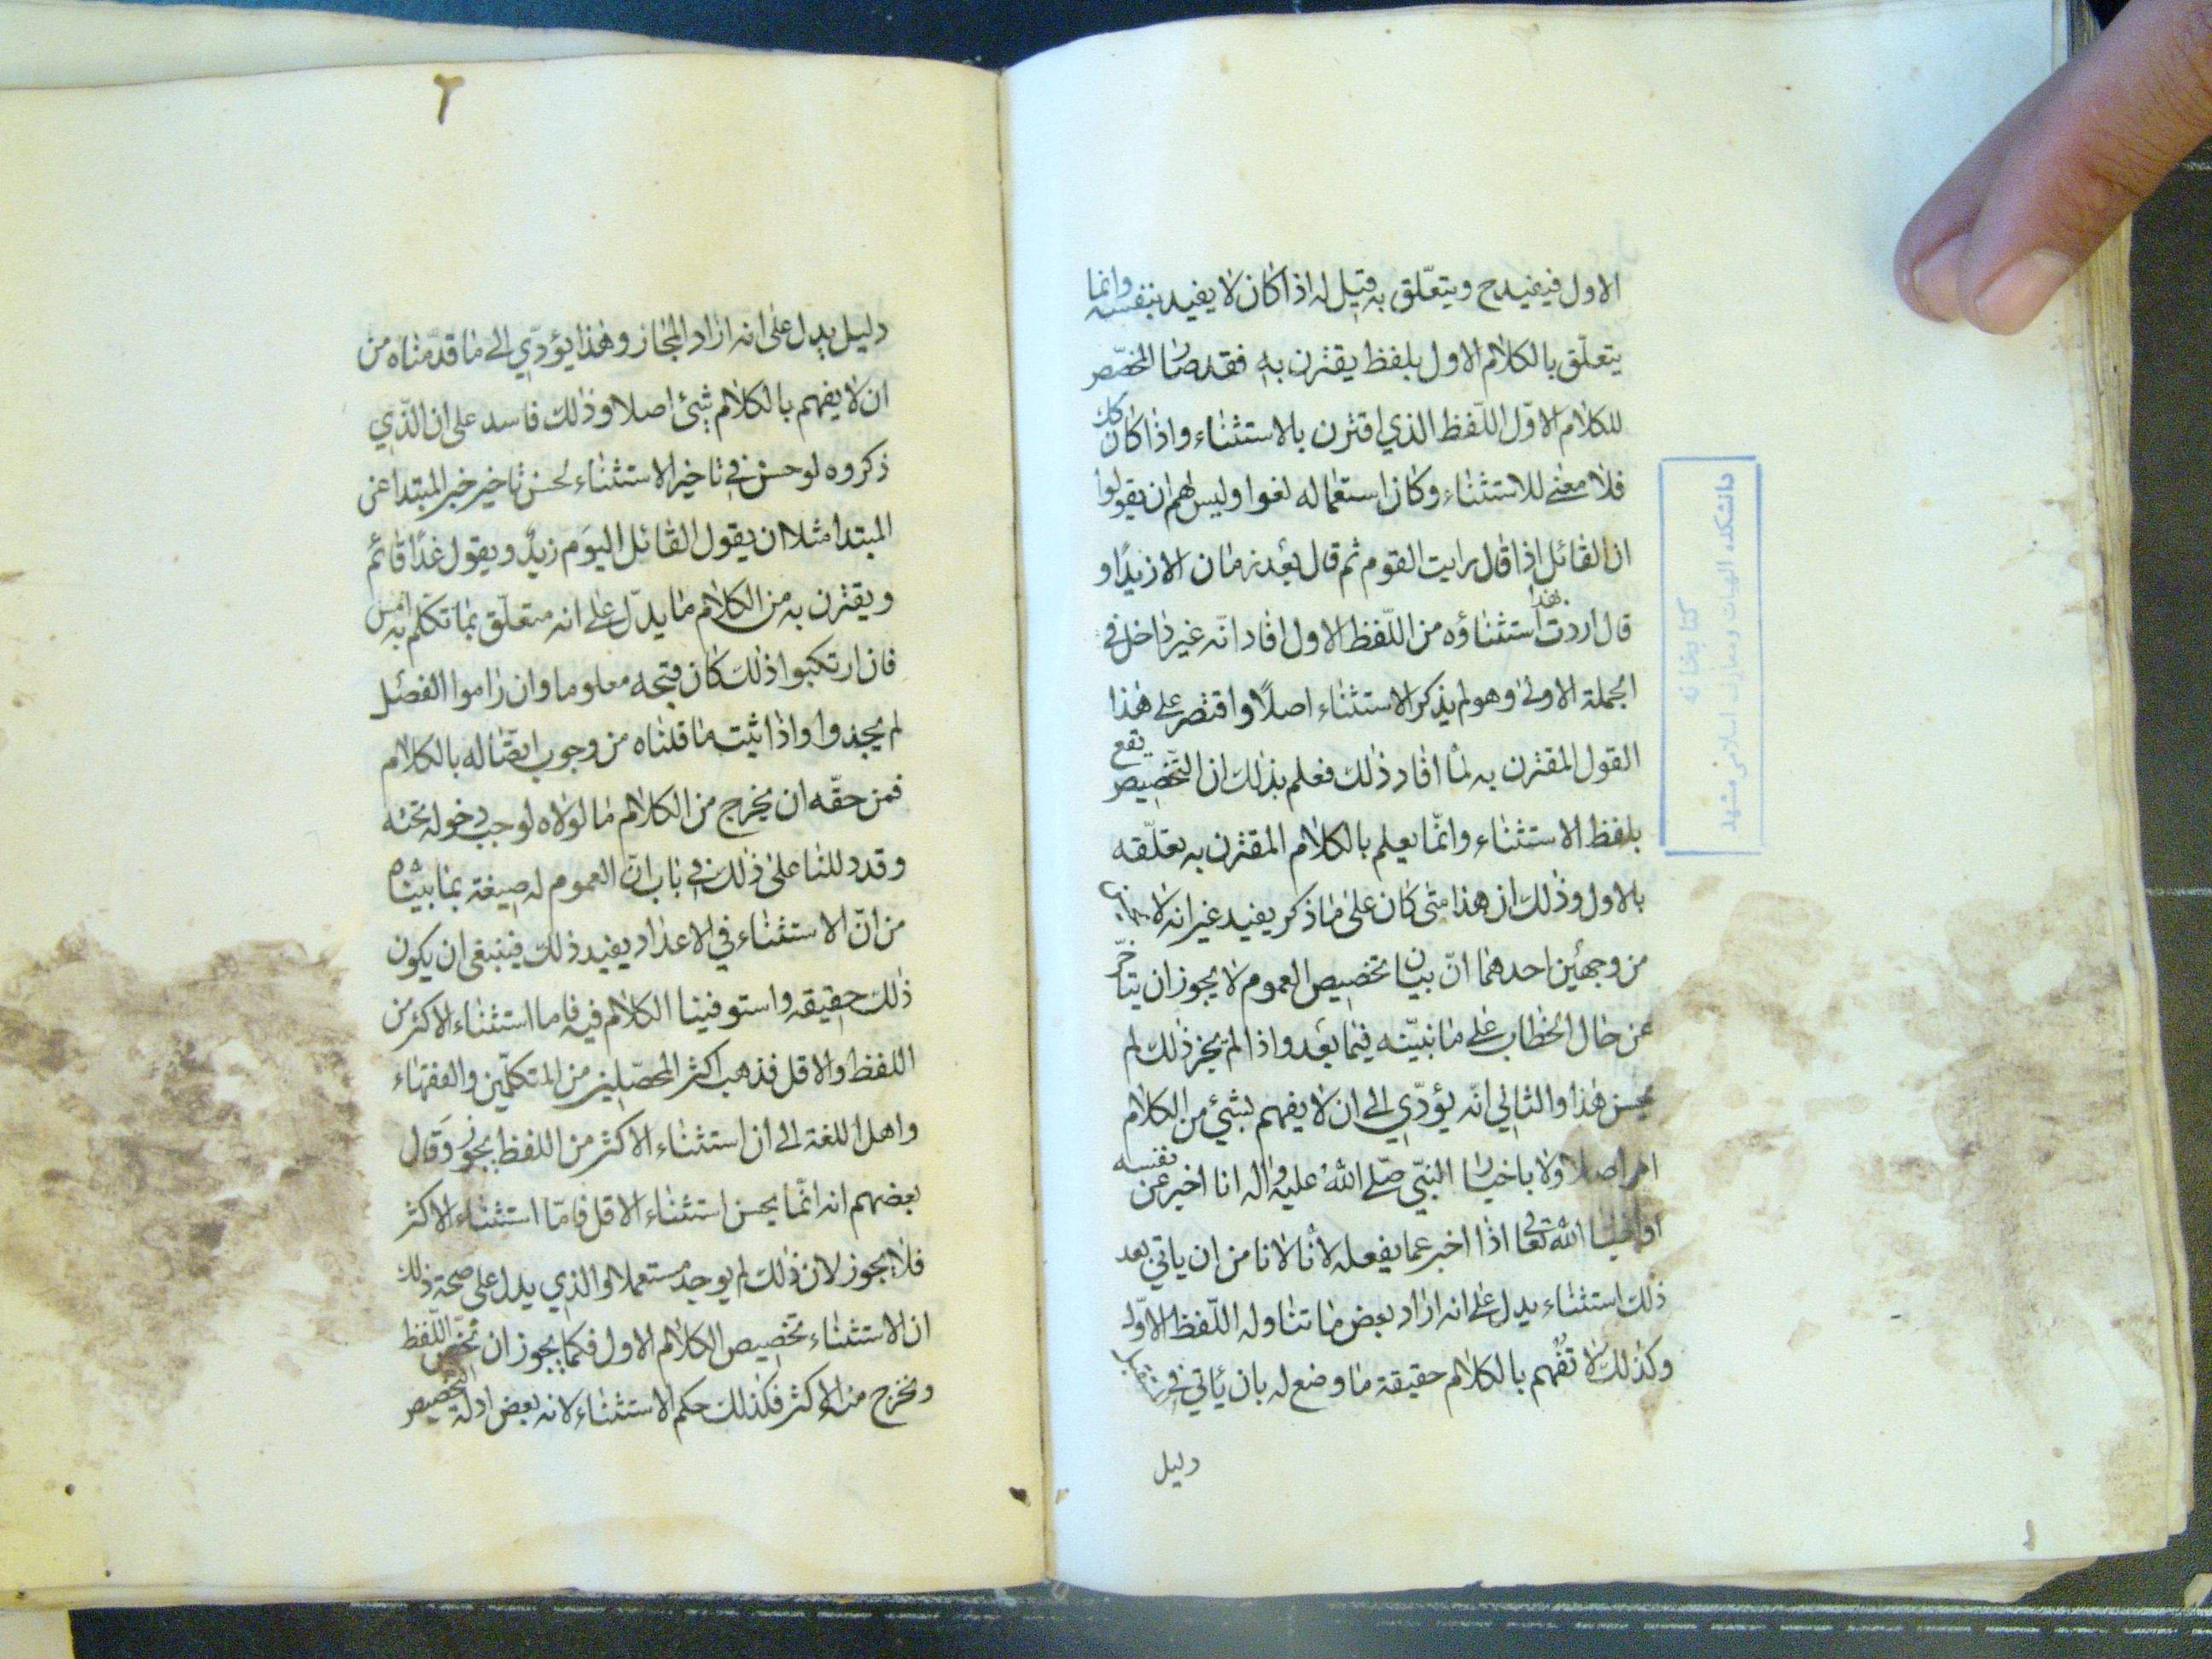 الاول فيفيد ح ويتعلّق به قيل له اذا كان لا يفيد بنفسه وانما
يتعلّق بالكلام الاول بلفظ يقترن به فقد صار المخصّص
للكلام الاوّل اللّفظ الذي اقترن بالاستثناء واذا كان كك
فلا معنى للاستثناء وكان استعماله لغوا وليس لهم ان يقولوا
ان القائل اذا قال رايت القوم ثم قال بعد زمان الا زيدًا و
قال اردت بهذا استثناؤه من اللّفظ الاول افاد انّه غير داخل في
الجملة الاولى وهو لم يذكر الاستثناء اصلًا واقتصر على هذا
القول المقترن به لما افاد ذلك فعلم بذلك ان التّخصيص يقع
بلفظ الاستثناء وانّما يعلم بالكلام المقترن به تعلّقه
بالاول وذلك ان هذا متى كان على ما ذكر يفيد غير انه لا
من وجهين احدهما انّ بيان تخصيص العموم لا يجوز ان يتاخّر
عن حال الخطاب على ما نبيّنه فيما بعد واذا لم يجز ذلك لم
يحسن هذا والثاني انّه يؤدّي الى ان لا يفهم بشيء من الكلام
امر اصلا ولا باخبار النبيّ صلّى الله عليه واله اذا اخبر عن نفسه
او اخبار الله تعالى اذا اخبر عما يفعله لأنا لا نا من ان ياتي بعد
ذلك استثناء يدل على انه اراد بعض ما تناوله اللّفظ الاوّل
وكذلك لا تفهم بالكلام حقيقة ما وضع له بان يأتي في
دليل
دانشكده الهيات ومعارف اسلامى مشهد
كتابخانه
٢
دليل يدل على انه اراد المجاز وهذا يؤدّي الى ما قدّمناه من
ان لا يفهم بالكلام شيئ اصلا وذلك فاسد على ان الّذي
ذكروه لو حسن في تاخير الاستثناء لحسن تاخير خبر المبتدا عن
المبتدا مثلا ان يقول القائل اليوم زيدٌ ويقول غدًا قائم
ويقترن به من الكلام ما يدلّ على انه متعلّق بما تكلم به امس
فان ارتكبوا ذلك كان قبحه معلوما وان راموا الفصل
لم يجدوا واذا ثبت ما قلناه من وجوب اتّصاله بالكلام
فمن حقّه ان يخرج من الكلام ما لولاه لوجب دخوله تحته
وقد دللنا على ذلك في باب انّ العموم له صيغة بما بيّناه
من انّ الاستثناء في الاعداد يفيد ذلك فينبغى ان يكون
ذلك حقيقه واستوفينا الكلام فيه فاما استثناء الاكثر من
اللفظ والاقل فذهب اكثر المحصّلين من المتكلّمين والفقهاء
واهل اللغة الى ان استثناء الاكثر من اللفظ يجوز وقال
بعضهم انه انّما يحسن استثناء الاقل فامّا استثناء الاكثر
فلا يجوز لان ذلك لم يوجد مستعملا والذي يدل على صحة ذلك
ان الاستثناء تخصيص الكلام الاول فكما يجوز ان نخصّ اللّفظ
ونخرج منه الاكثر فكذلك حكم الاستثناء لانه بعض ادلة التخصيص